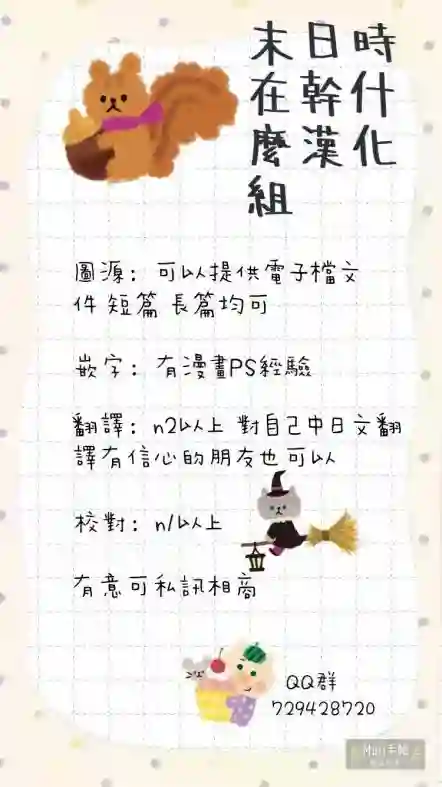 末日時
在幹什
麼漢化
組
圖源：可以提供電子檔文
件 短篇 長篇均可
嵌字：有漫畫PS經驗
翻譯：n2以上 對自己中日文翻
譯有信心的朋友也可以
校對：n1以上
有意可私訊相商
QQ群
729428720